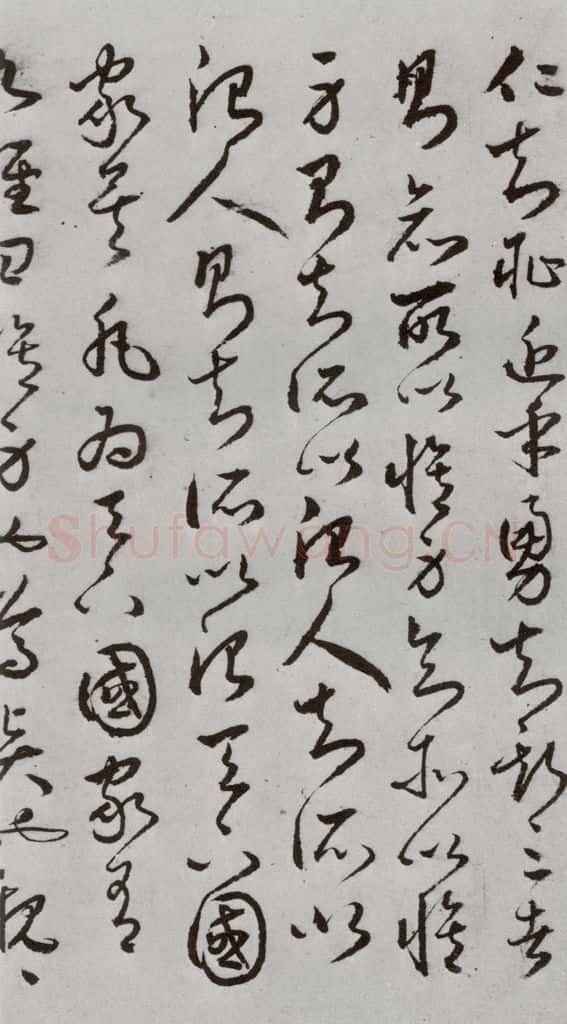 仁知恥近乎勇知斯三者
則知所以脩身知所以脩
身則知所以治人知所以
治人則知所以治天下國
家矣凡為天下國家有
九經曰脩身也尊賢也親〻
Shufawang.CN